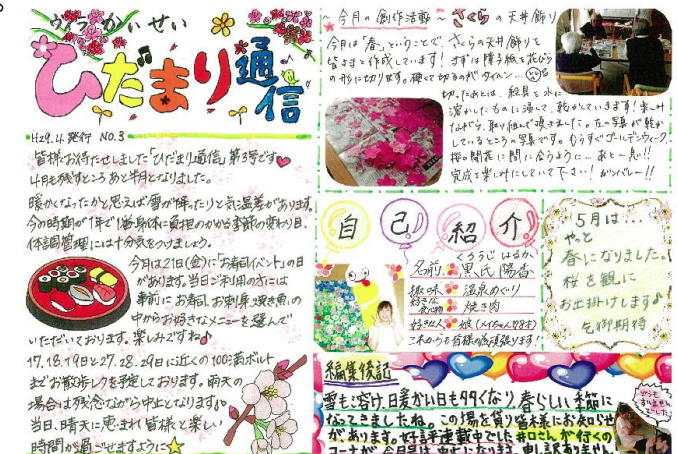 ひだまり通信
H29.4.発行 NO.3
皆様お待たせしました「ひだまり通信」第3号です
4月も残すところあと半月となりました。
暖かくなったかと思えば雪が降ったりと気温差があります。
今の時期が1年で1番身体に負担のかかる季節の変わり目、
体調管理には十分気をつけましょう。
今月は21日(金)に「お寿司イベント」の日
があります。当日ご利用の方には
事前にお寿司、お刺身、焼き魚の
中からお好きなメニューを選んで
いただいております。楽しみですね♪
17.18.19日と27.28.29日に近くの100満ボルト
までお散歩レクを予定しております。雨天の
場合は残念ながら中止となります。
当日、晴天に恵まれ皆様と楽しい
時間が過ごせますように☆
~今月の創作活動~ さくらの天井飾り
今月は「春」ということで、さくらの天井飾りを
皆さまと作成しています! まずは障子紙を花びら
の形に切ります。硬くて切るのがタイヘン…
切ったあとは、絵具を水に
溶かしたものに浸して、乾かしていきます!楽しみ
ながら、取り組んで頂きました。左の写真が乾か
しているところの写真です。もうすぐゴールデンウィーク、
桜の開花に間に合うように…あと一息!!
完成を楽しみにしていて下さい! ガンバレー!!
自己紹介
くろうじ はるか
名前 黒氏 陽香
趣味 温泉めぐり
好きな食べ物 焼き肉
好きな人 娘
これからも皆様の為頑張ります
5月は…
やっと
春になりました。
桜を観に
お出掛けします♪
乞御期待
編集後記
雪もとけ、日暖かい日も多くなり春らしい季節に
なってきましたね。この場を借り皆様にお知らせ
があります。好評連載中でした井口さんが行くの
コーナーが今月号は中止になります。申し訳ありません。